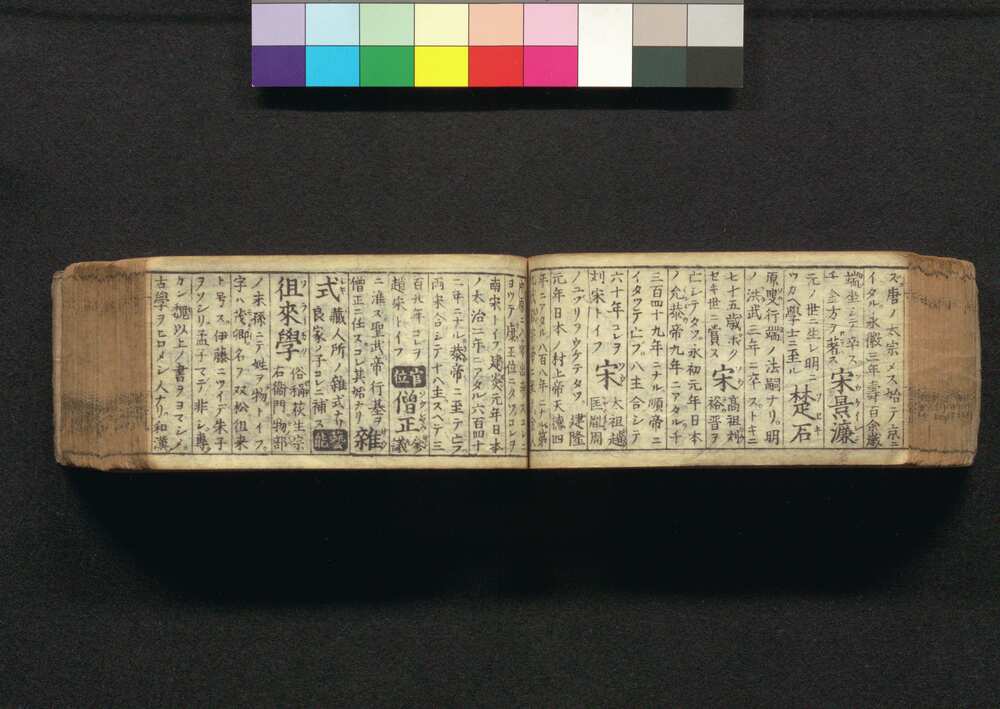 ス唐ノ太宗メス始テ京ニ
イタル永徽三年壽百余歳
端坐シテ卒ス 宋景濂
千金方ヲ著ス
元ノ世ニ生レ明ニ 楚石
ツカヘ學士ニ至ル
原叟行端ノ法嗣ナリ明
ノ洪武三年ニ卒ストキニ
七十五歳ボク 宋 高祖劉
セキ世ニ賞ス 裕晋ヲ
亡シテタツ永初元年日本
ノ允恭帝九年ニアタル千
三百四十九年ニナル順帝ニ
イタツテ亡ブ八主合シテ
六十年コレヲ 宋 太祖趙
刘宋トイフ 匡胤周
ノユヅリヲウケテタツ建隆
元年日本ノ村上帝天德四
年ニアタル八百八年ニナル第
ヨツテ康王位ニタツコレヲ
南宋トイフ建炎元年日本
ノ太治二年ニアタル六百四十
二年ニナル恭帝ニ至テ亡ブ
両宋合シテ十八主スベテ三
百廿年コレヲ 官位 僧正 參
趙宋トイフ 議
ニ准ス聖武帝行基ヲ 雜
僧正ニ任スコレ其始ナリ
式 藏人所ノ雜式ナリ 藝能
良家ノ子コレニ補ス
徂來學 俗稱荻生宗
右衞門物部
ノ末孫ニテ姓ヲ物トイフ
字ハ茂卿名ヲ双松徂来
ト号ス伊藤ニツイデ朱子
ヲソシリ孟子マデ非シ專
カン調以上ノ書ヲヨマシメ
古學ヲヒロメシ人ナリ和漢